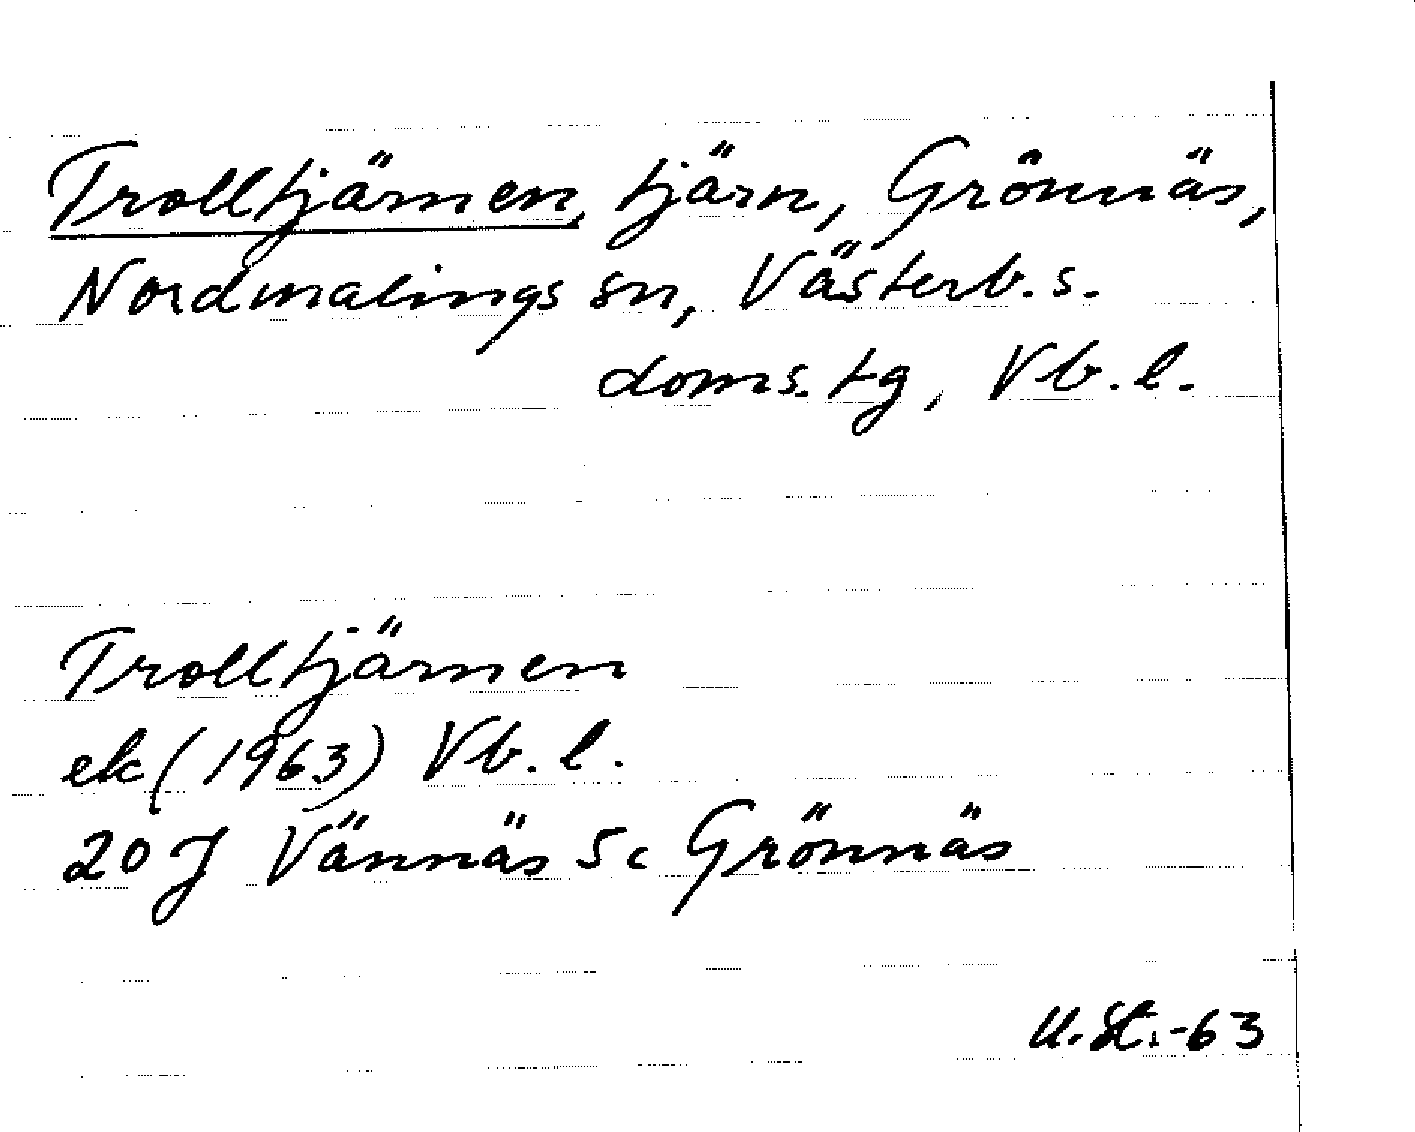 Trolltjärnen, tjärn, Grönnäs,
Nordmalings sn, Västerb. s.
doms. tg, Vb. l.
Trolltjärnen
ek (1963) Vb. l.
20 J Vännäs 5 c Grönnäs
U. St. -63